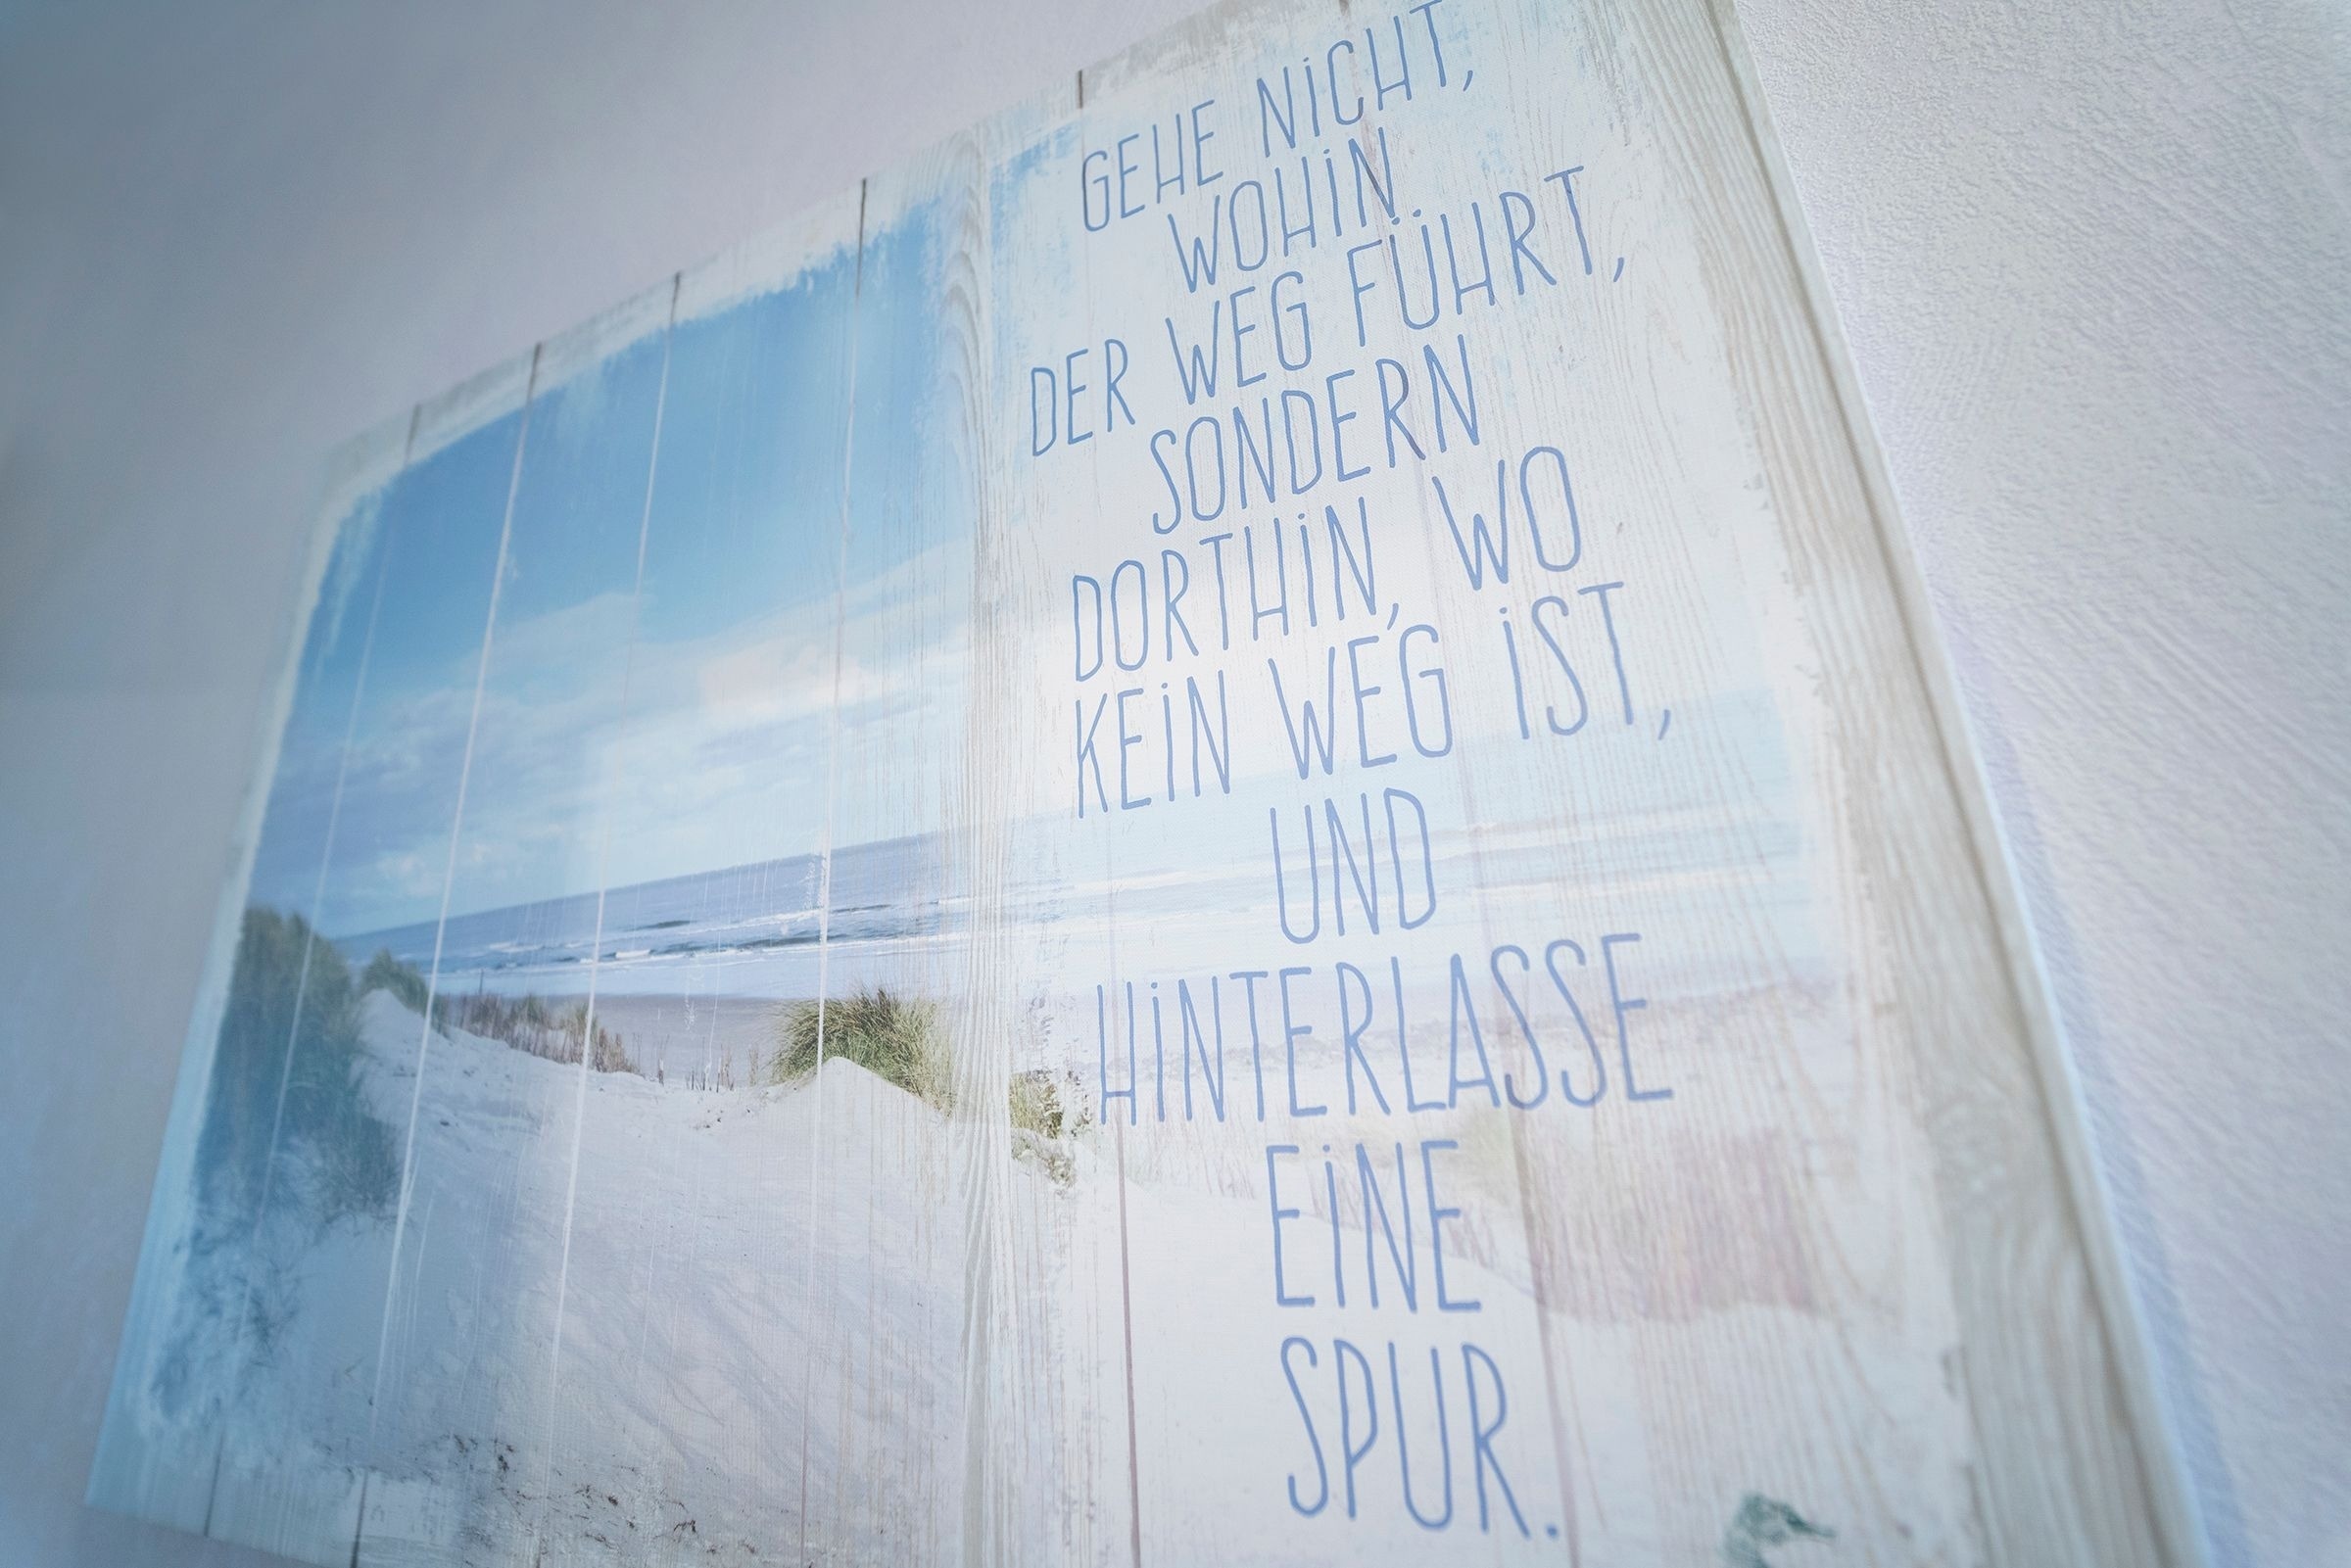 GEHE NiCHT,
WOHiN
DER WEG FÜHRT,
SONDERN
DORTHiN, WO
KEiN WEG iST,
UND
HiNTERLASSE
EiNE
SPUR.